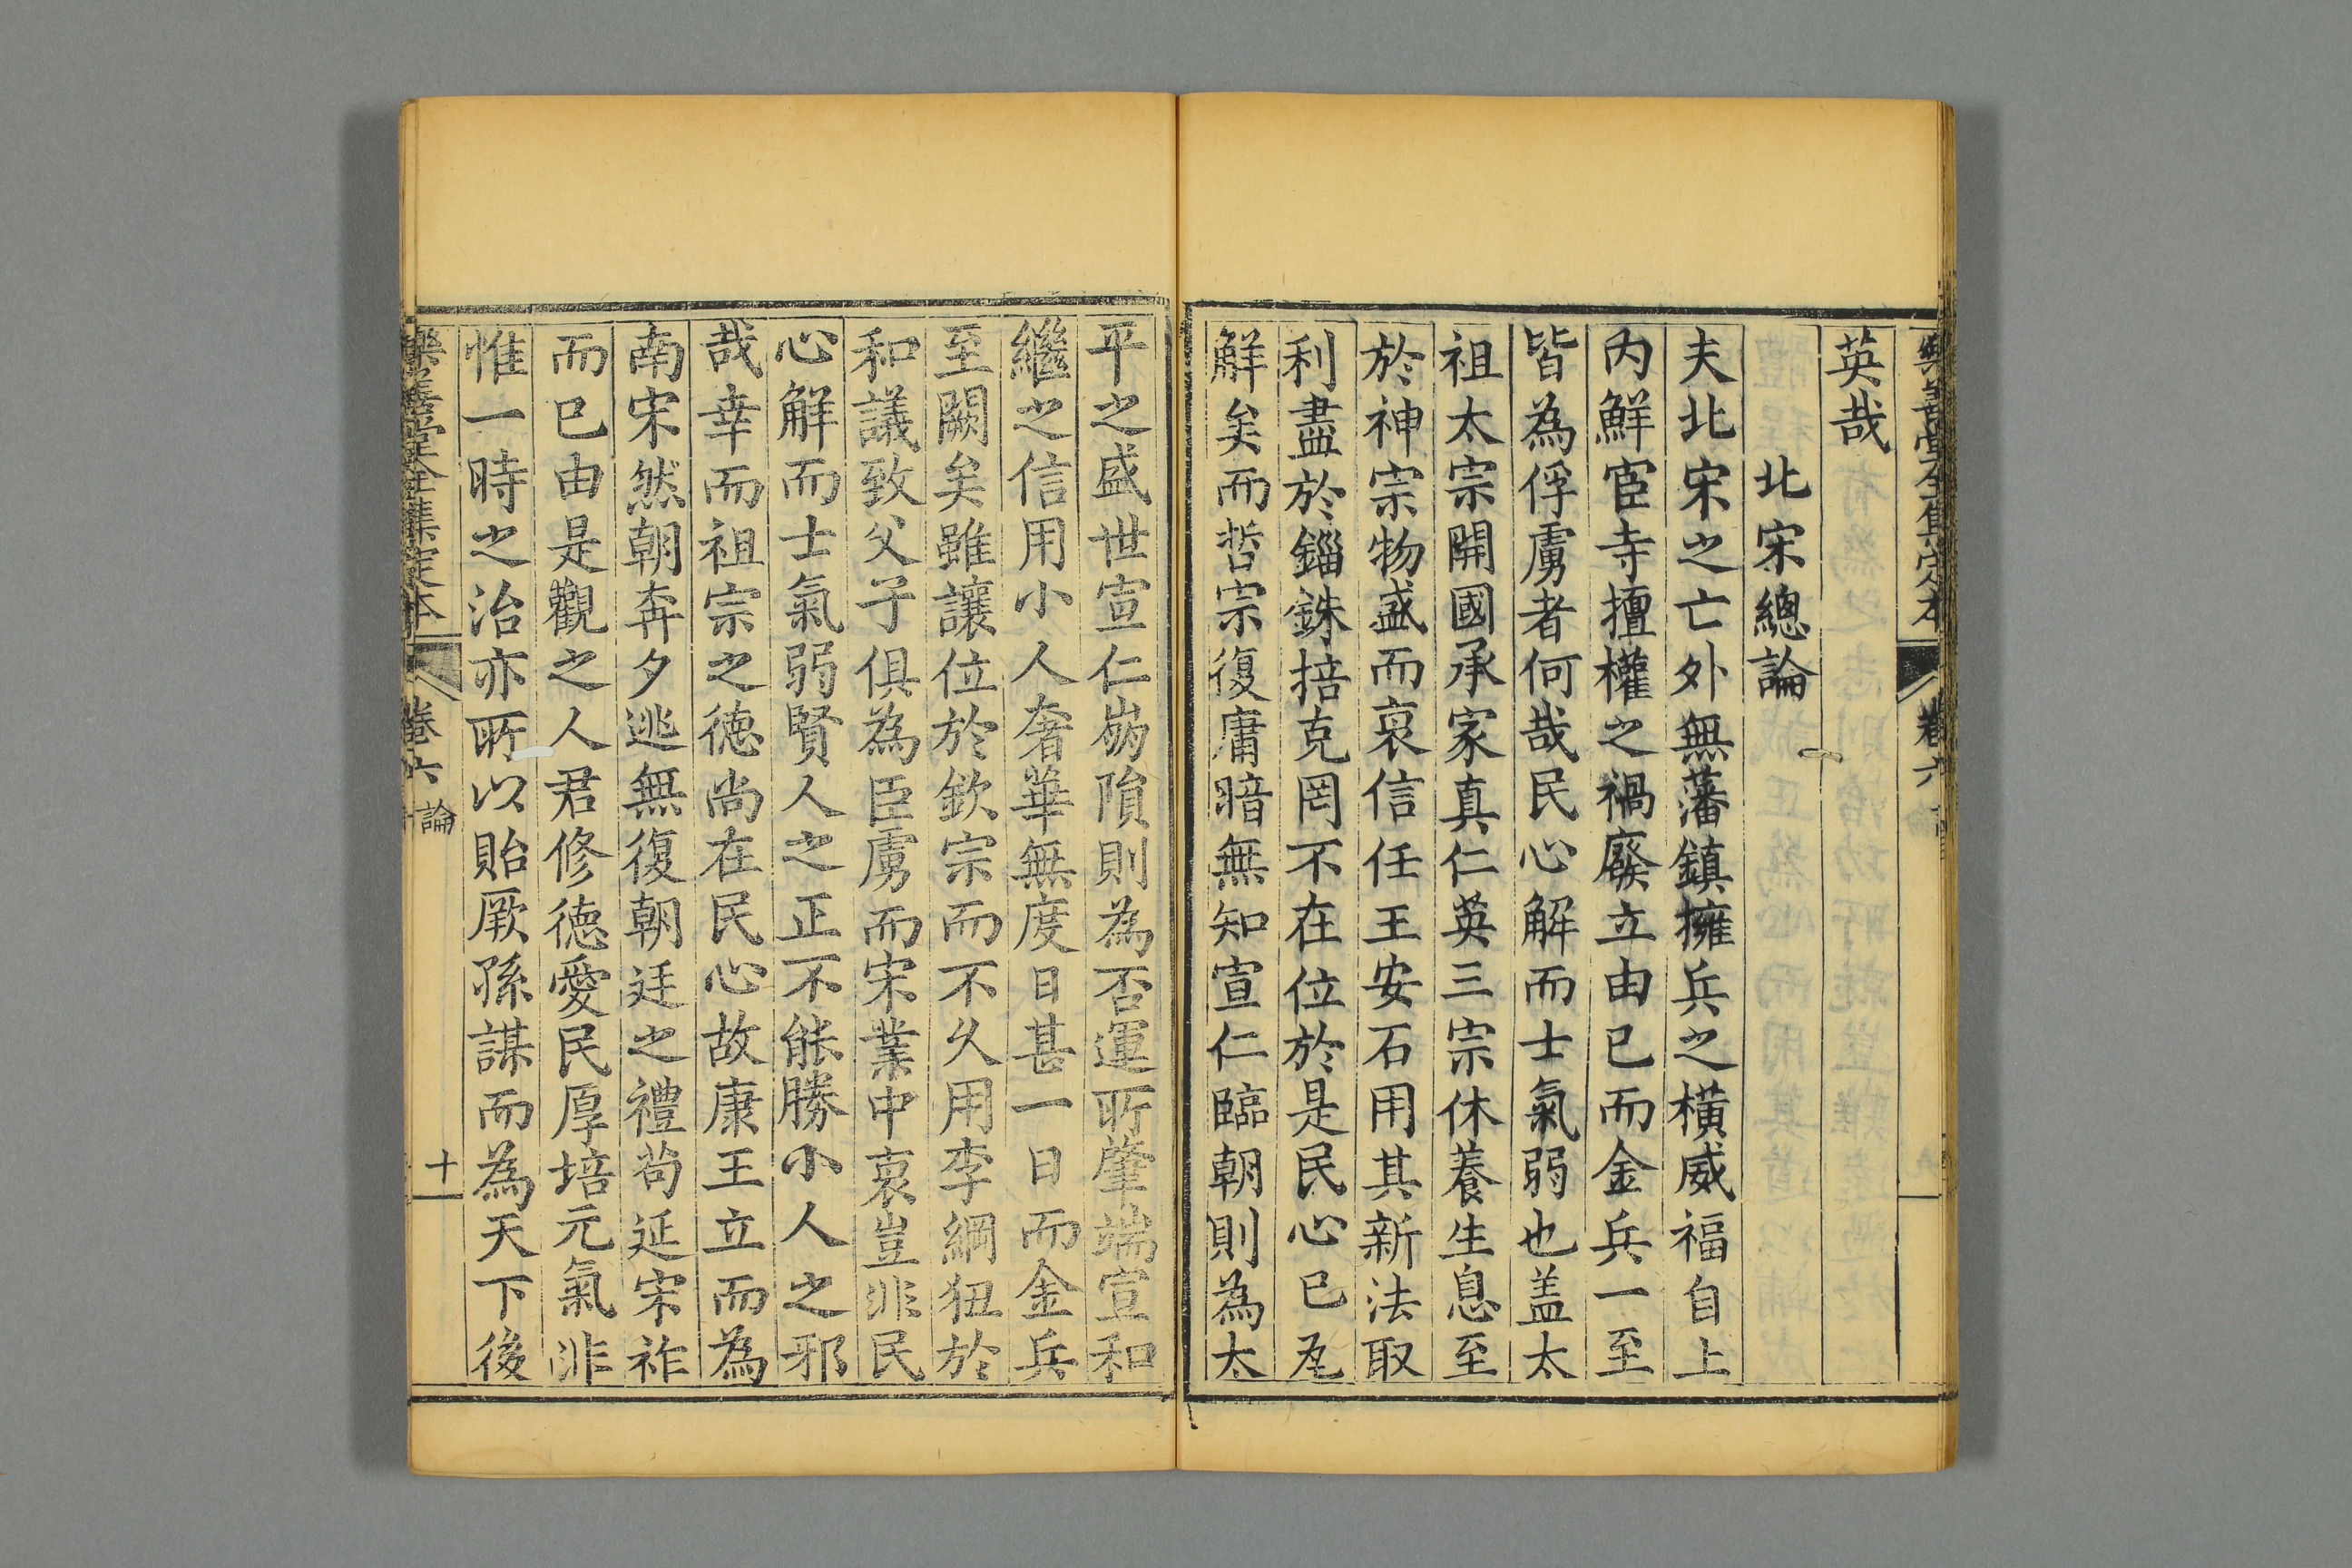 樂善堂全集定本
卷六
英哉
北宋總論
夫北宋之亡外無藩鎮擁兵之橫威福自上
內鮮宦寺擅權之禍廢立由已而金兵一至
皆為俘虜者何哉民心解而士氣弱也盖太
祖太宗開國承家真仁英三宗休養生息至
於神宗物盛而衰信任王安石用其新法取
利盡於錙銖掊克罔不在位於是民心已瓦
解矣而哲宗復庸暗無知宣仁臨朝則為太
平之盛世宣仁崩隕則為否運所肇端宣和
繼之信用小人奢華無度日甚一日而金兵
至闕矣雖讓位於欽宗而不久用李綱狃於
和議致父子俱為臣虜而宋業中衰豈非民
心解而士氣弱賢人之正不能勝小人之邪
哉幸而祖宗之德尚在民心故康王立而為
南宋然朝奔夕逃無復朝廷之禮苟延宋祚
而已由是觀之人君修德愛民厚培元氣非
惟一時之治亦所以貽厥孫謀而為天下後
樂善堂全集定本
卷六
論
十一